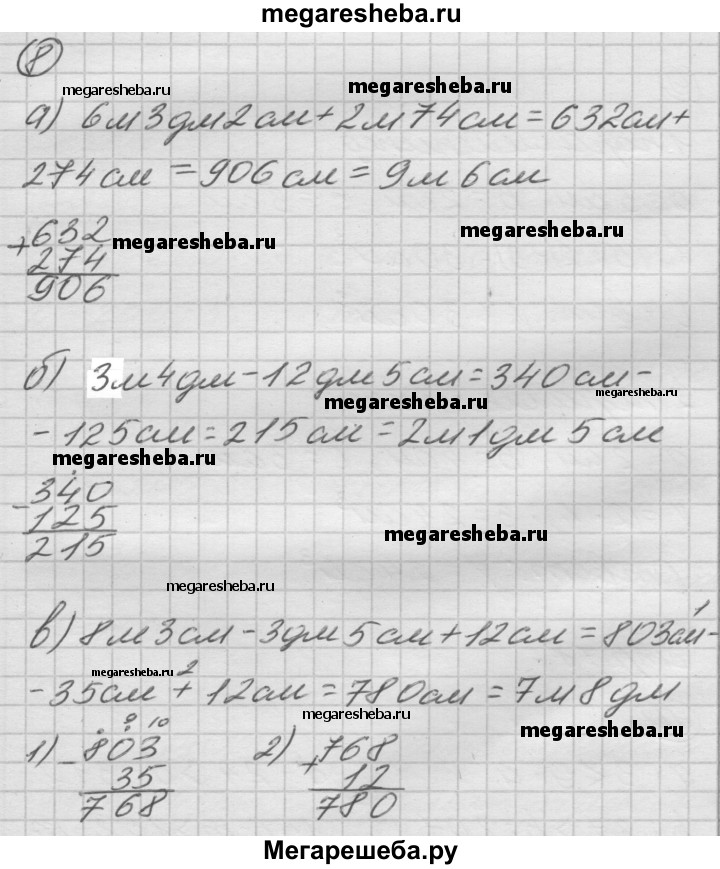 megaresheba.ru
8
megaresheba.ru megaresheba.ru
а) 6м3дм2см+2м74см=632см+
274см=906см=9м6см
+632
274
906
megaresheba.ru megaresheba.ru
б) 3м4дм-12дм5см=340см-
megaresheba.ru megaresheba.ru
-125см=215см=2м1дм5см
megaresheba.ru
-340
125
215
megaresheba.ru
megaresheba.ru
1
в) 8м3см-3дм5см+12см=803см-
megaresheba.ru 2
-35см+12см=780см=7м8дм
megaresheba.ru megaresheba.ru
9 10
1) -803
35
768
2) +768
12
780
Мегарешеба.ру